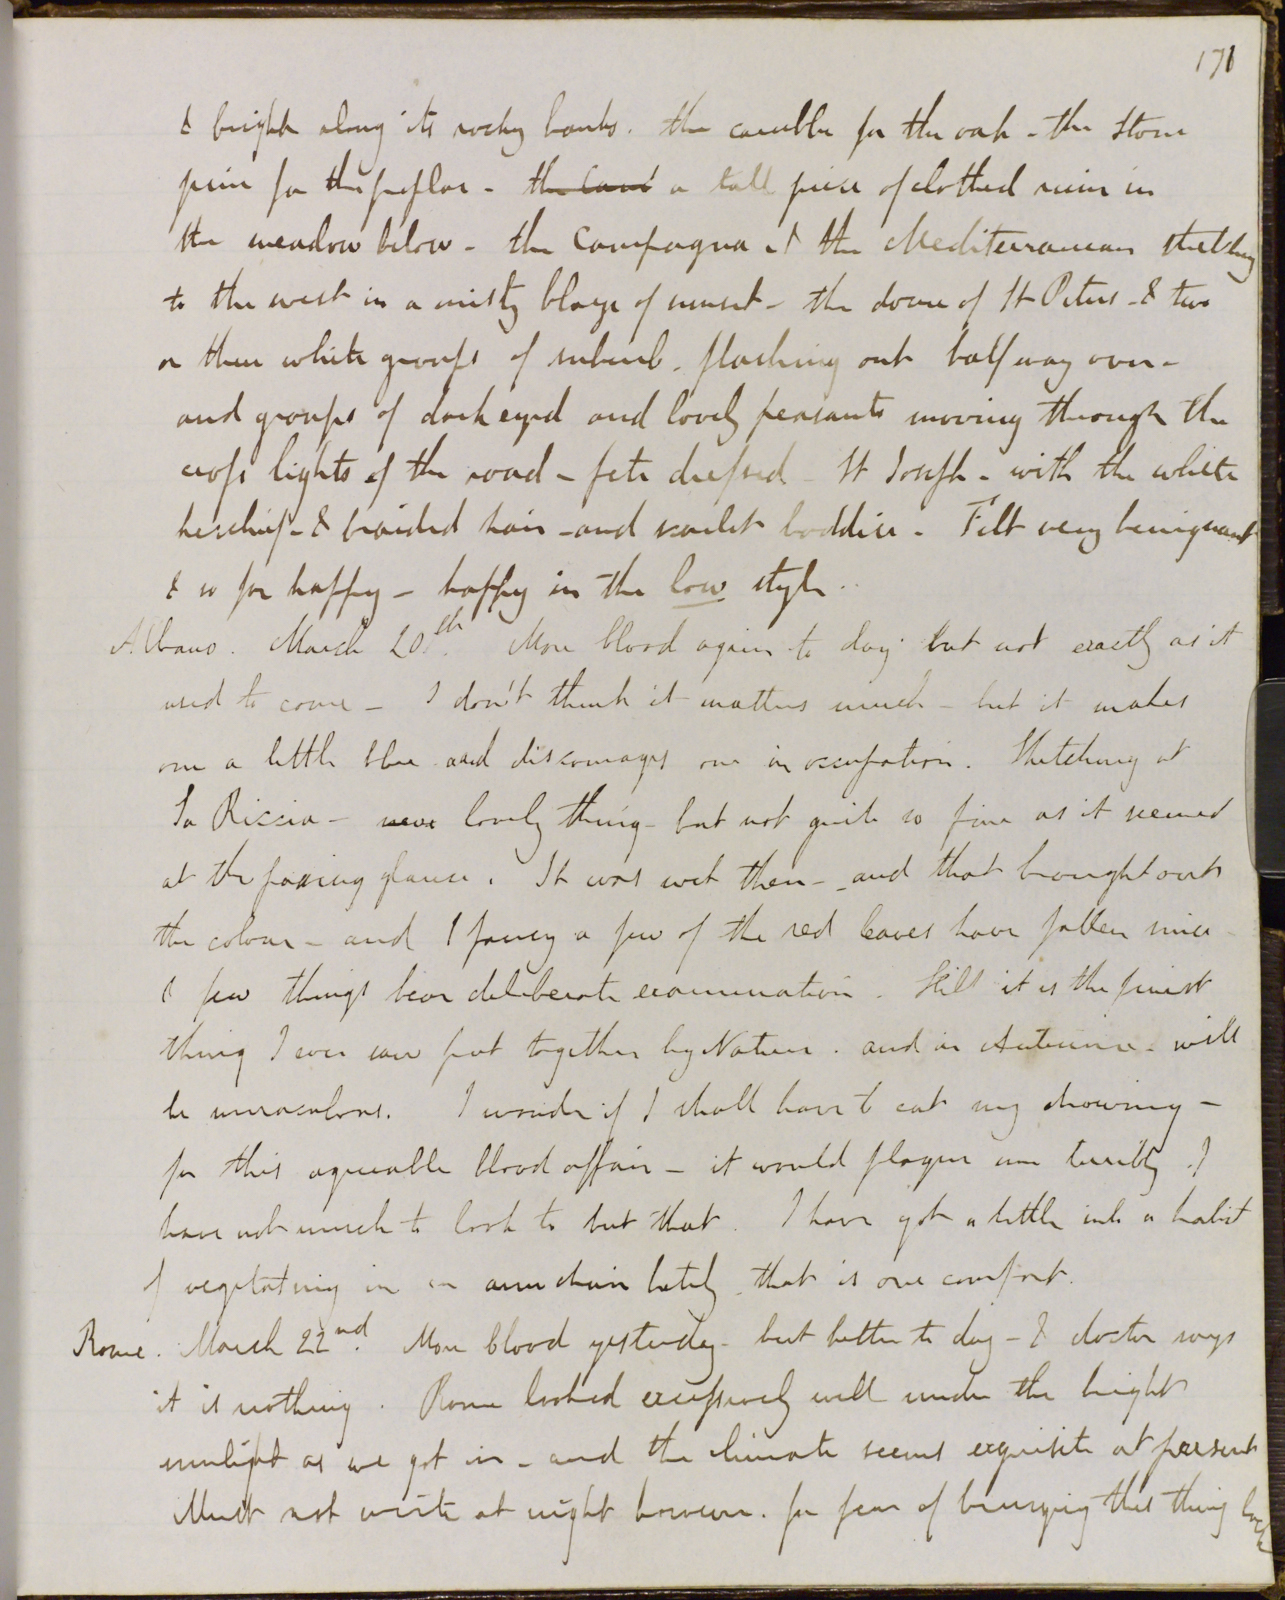 171
& bright along its rocky banks. the carubba for the oak - the stone
pine for the poplar - the cand a tall piece of clothed ruin in
the meadow below - the Campagna & the Mediterranean stretching
to the west in a misty blaze of sunset - the dome of St Peters - & two
or three white groups of suburb - flashing out halfway over -
and groups of dark eyed and lovely peasants moving through the
cross lights of the road - fete dressed - St Joseph - with the white
kerchief - & braided hair - and scarlet boddice - Felt very benignant
& so far happy - happy in the low style.
Albano. March 20th. More blood again to day but not exactly as it
used to come - I don't think it matters much - but it makes
one a little blue and discourages one in occupation. Sketching at
La Riccia - lovely thing - but not quite so fine as it seemed
at the passing glance. It was wet then - and that brought out
the colour - and I fancy a few of the red leaves have fallen since -
& few things bear deliberate examination. Still it is the finest
thing I ever saw put together by Nature. and in Autumn - will
be miraculous. I wonder if I shall have to cut my drawing -
for this agreeable blood affair - it would plague me terribly. I
have not much to look to but that. I have got a little into a habit
of vegetating in an armchair lately that is one comfort.
Rome. March 22nd. More blood yesterday - but better to day - & doctor says
it is nothing. Rome looked excessively well under the bright
sunlight as we got in - and the climate seems exquisite at present
Must not write at night however. for fear of bringing this thing back